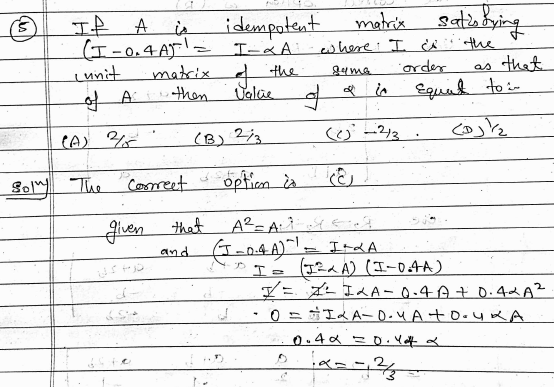 (5) If A is idempotent matrix satisfying
(I-0.4A)⁻¹ = I-αA where I is the
unit matrix of the same order as that
of A then value of α is equal to:-
(A) 2/5 (B) 2/3 (C) -2/3 . (D) 1/2
Solⁿ) The correct option is (C)
given that A²=A
and (I-0.4A)⁻¹ = I-αA
I = (I²-αA) (I-0.4A)
I = I - IαA - 0.4A + 0.4αA²
0 = -IαA - 0.4A + 0.4αA
0.4α = 0.4+α
α = -2/3